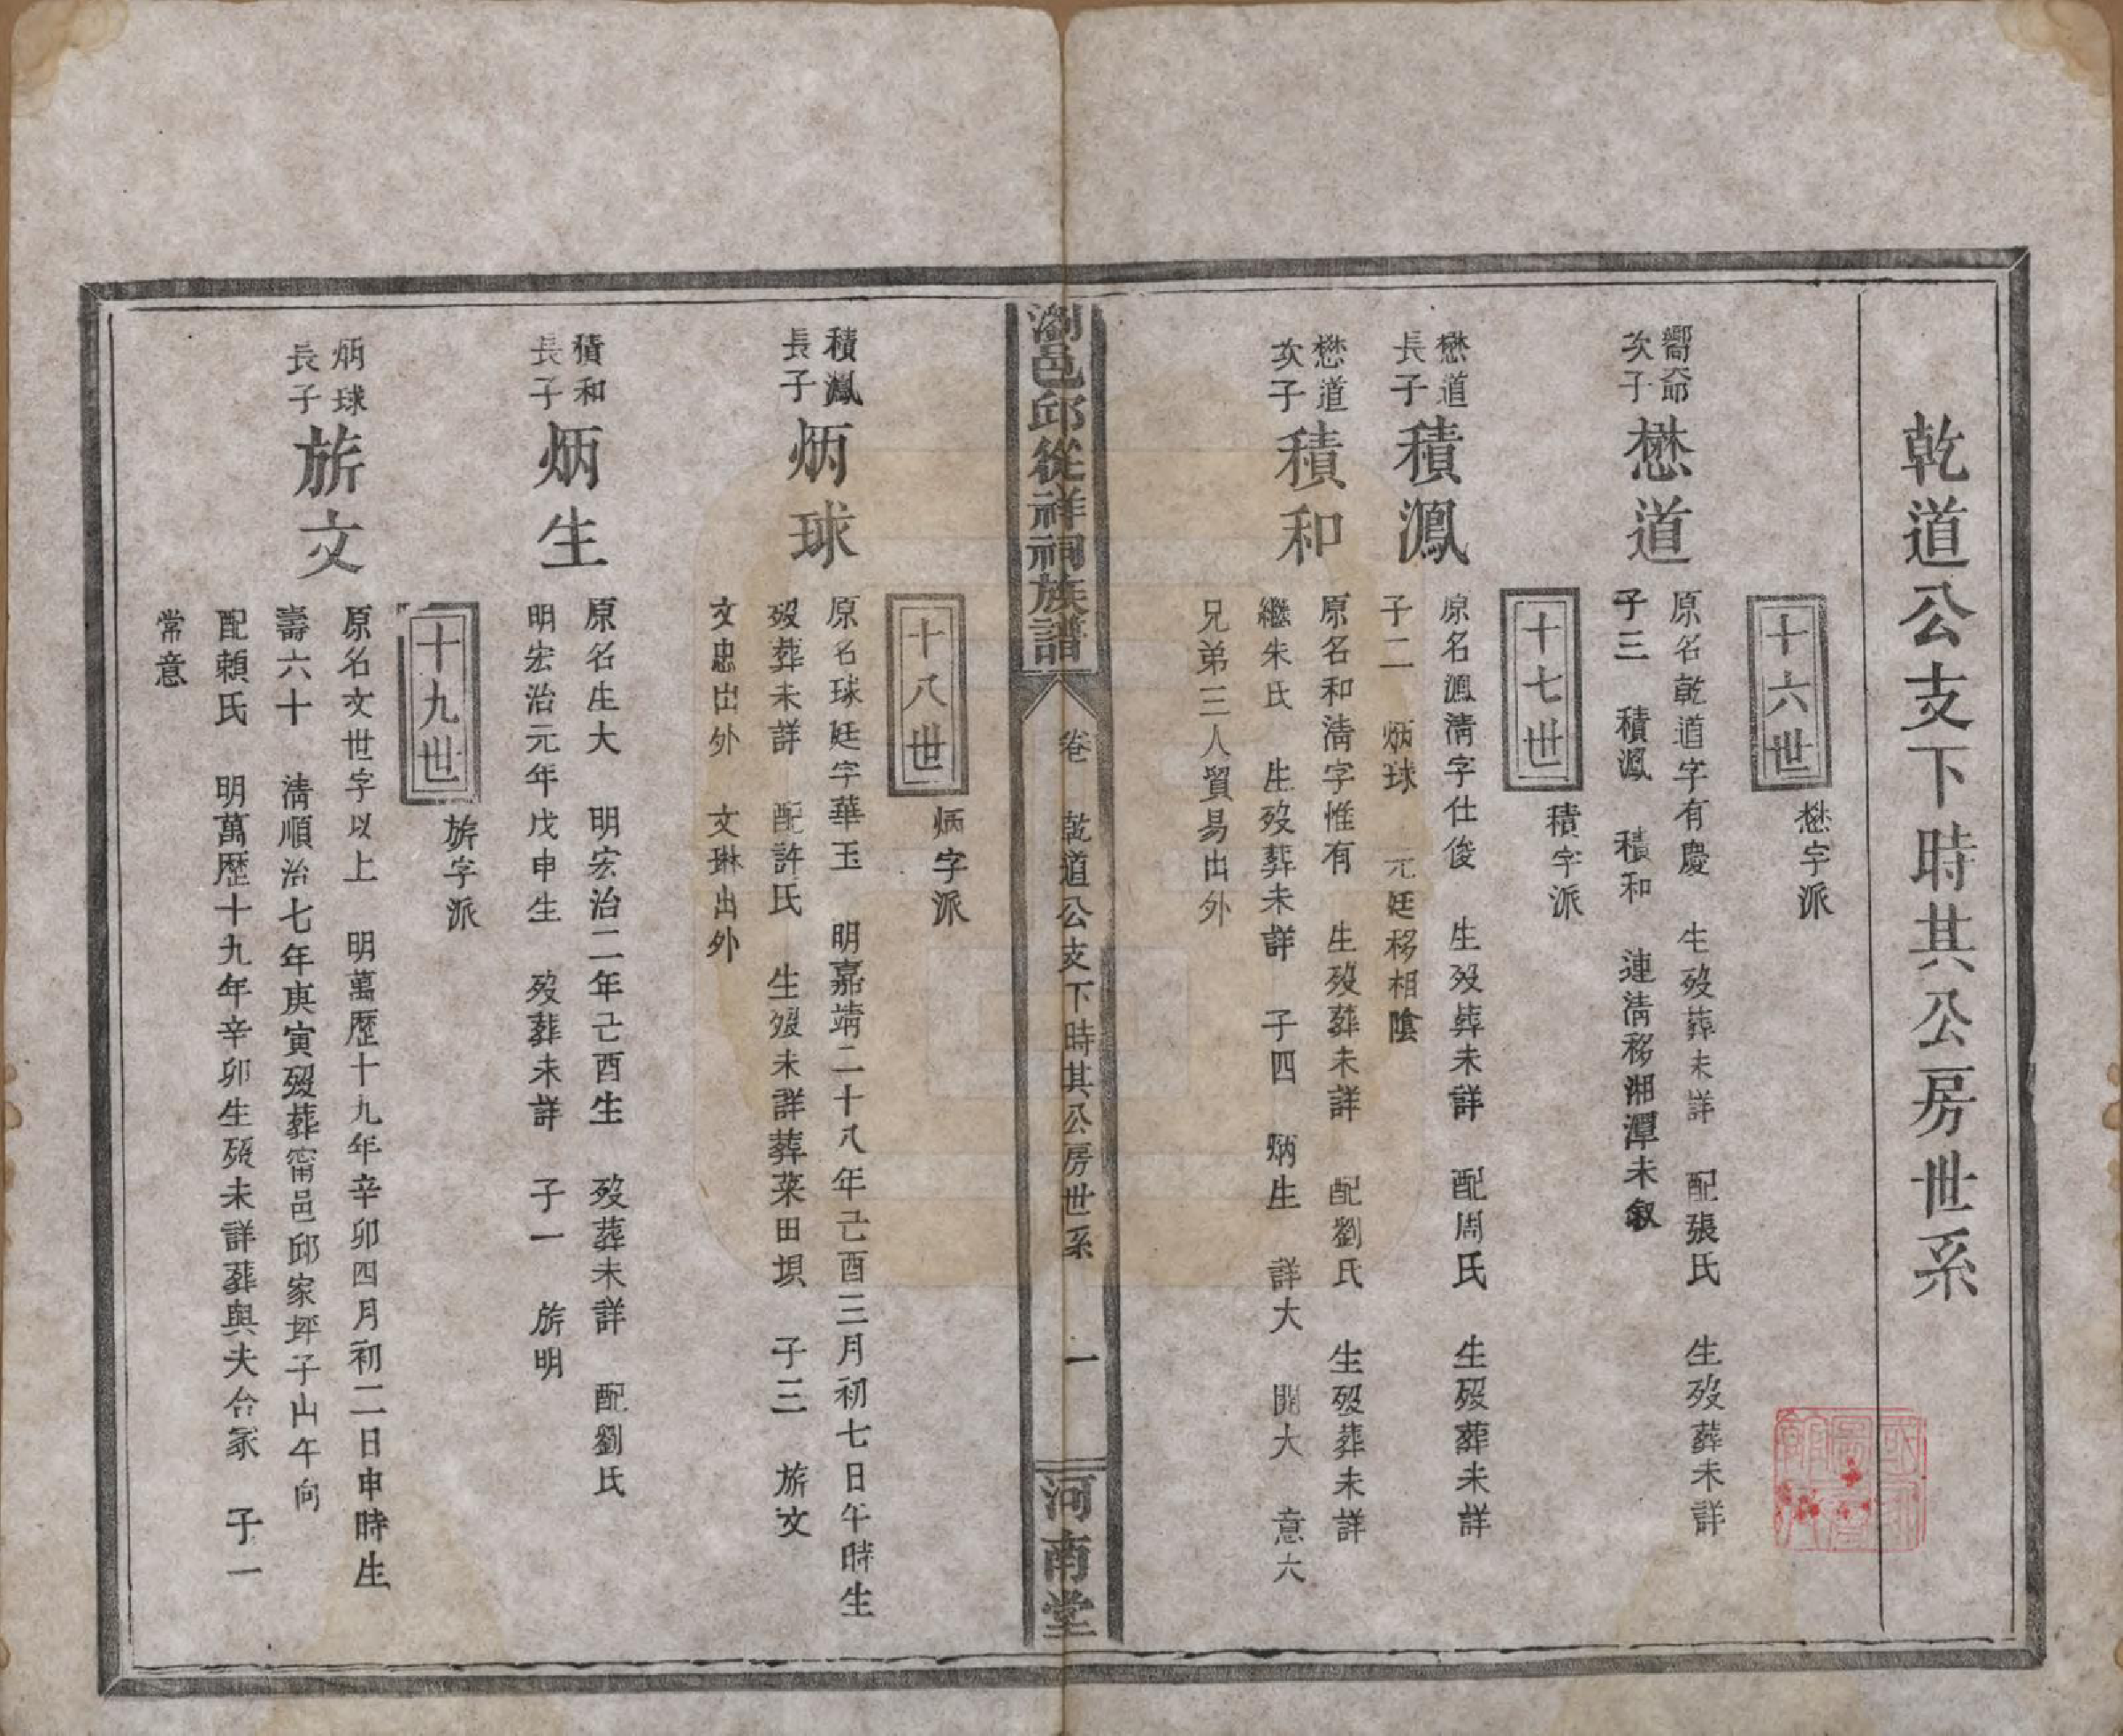 乾道公支下時其公房世系
十六世
懋字派
嚮𡗝次子
懋道
原名乾道字有慶　生歿葬未詳　配張氏　生歿葬未詳
子三　積鳳　積和　連淸移湘潭未叙
十七世
積字派
懋道長子
積鳳
原名鳳淸字仕俊　生歿葬未詳　配周氏　生歿葬未詳
子二　炳球　元廷移相陰
懋道次子
積和
原名和淸字惟有　生歿葬未詳　配劉氏　生歿葬未詳
繼朱氏　生歿葬未詳　子四　炳生　詳大　開大　意六
兄弟三人貿易出外
瀏邑邱從祥祠族譜
卷　乾道公支下時其公房世系
一
河南堂
十八世
炳字派
積鳳長子
炳球
原名球廷字華玉　明嘉靖二十八年己酉三月初七日午時生
歿葬未詳　配許氏　生歿未詳葬菜田垻　子三　旂文
文忠出外　文琳出外
積和長子
炳生
原名生大　明宏治二年己酉生　歿葬未詳　配劉氏
明宏治元年戊申生　歿葬未詳　子一　旂明
十九世
旂字派
炳球長子
旂文
原名文世字以上　明萬歷十九年辛卯四月初二日申時生
壽六十　淸順治七年庚寅歿葬甯邑邱家坪子山午向
配賴氏　明萬歷十九年辛卯生歿未詳葬與夫合冢　子一
常意